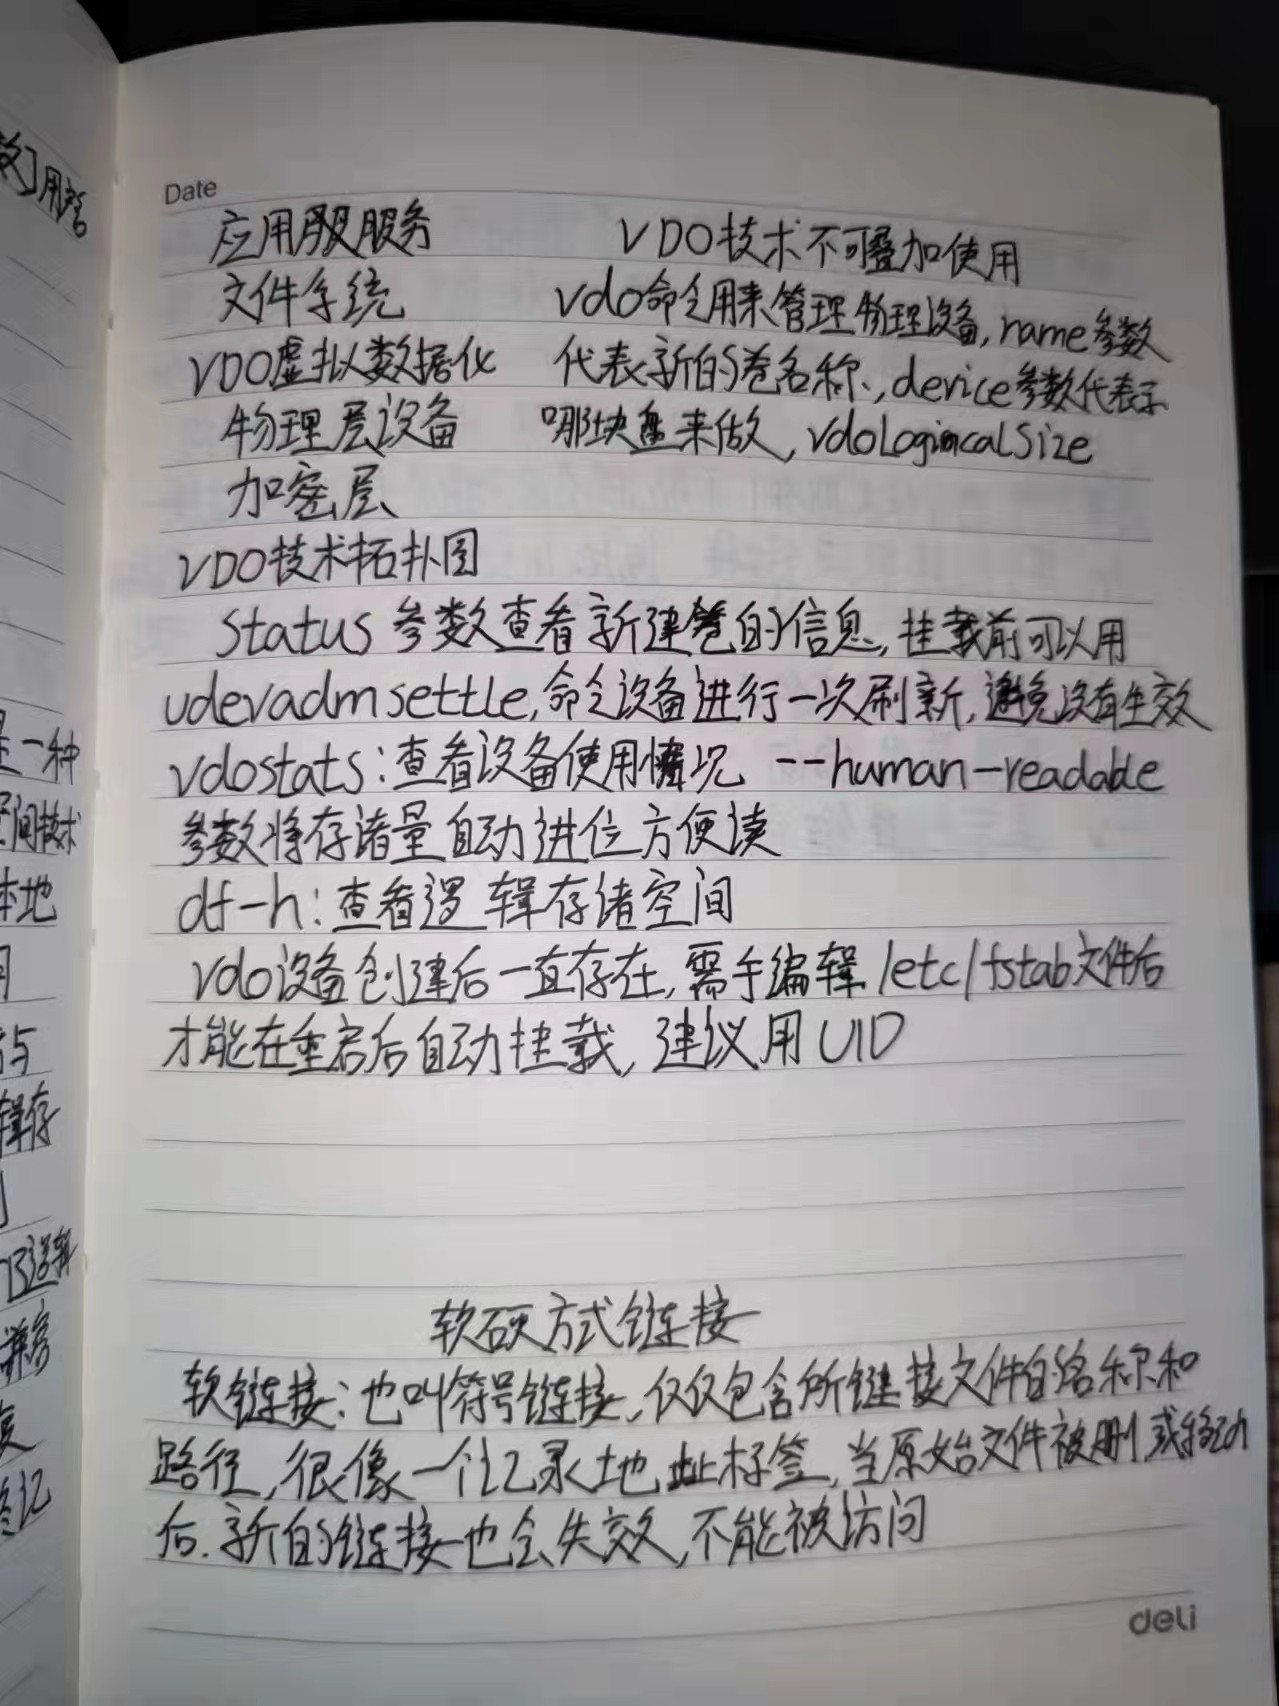 Date
应用服服务
VDO技术不可叠加使用
文件系统
vdo命令用来管理物理设备,name参数
VDO虚拟数据化
代表新的卷名称,device参数代表示
物理层设备
哪块盘来做,vdoLogimcalSize
加密层
VDO技术拓扑图
status 参数查看新建卷的信息,挂载前可以用
udevadm settle,命令设备进行一次刷新,避免没有生效
vdostats:查看设备使用情况 --human-readable
参数将存诸量自动进位方便读
df-h:查看逻辑存储空间
vdo设备创建后一直存在,需手编辑/etc/fstab文件后
才能在重启后自动挂载,建议用UID
软硬方式链接
软链接:也叫符号链接,仅仅包含所链接文件的名称和
路径,很像一个记录地址标签,当原始文件被删或移动
后.新的链接也会失效,不能被访问
deli
用
是一种
空间技术
本地
用
与
辑存